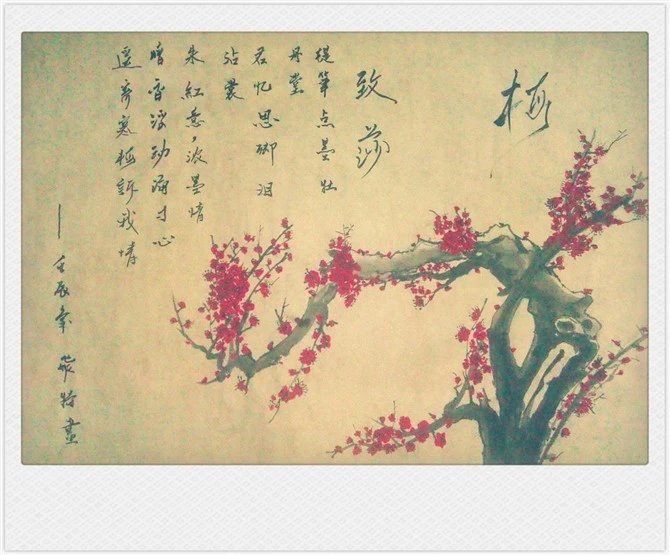 梅
致莎
提筆点墨牡
丹堂
君忆思卿泪
沾裳
朱紅意，浓墨情
暗香浮动 寸心
遥寄寒梅訴我情
—壬辰年 特畫